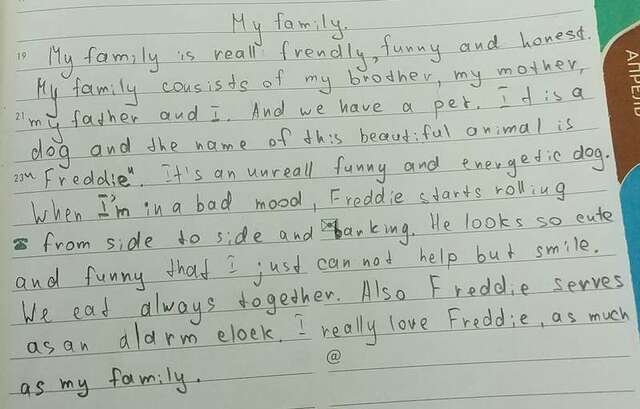 My family.
19 My family is reall frendly, funny and honest.
My family cousists of my brother, my mother,
21 my father and I. And we have a pet. It is a
dog and the name of this beautiful animal is
23 "Freddie". It's an unreall funny and energetic dog.
When I'm in a bad mood, Freddie starts rolling
☎ from side to side and barking. He looks so cute
and funny that I just can not help but smile.
We eat always together. Also Freddie serves
as an alarm clock. I really love Freddie, as much
@
as my family.